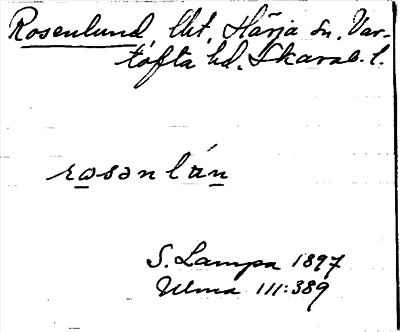 Rosenlund, lht, Härja sn. Var-
tofta hd. Skarab. l.
rosən lún
S. Lampa 1897
Ulma 111:389